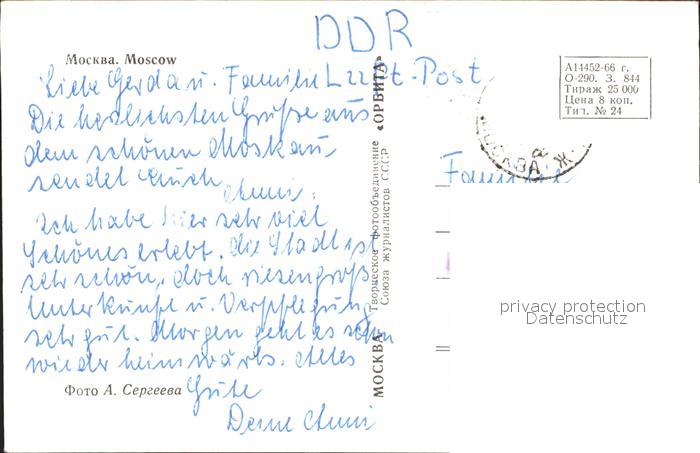 DDR
Москва. Moscow
Liebe Gerda u. Familie
Luft-Post
Die herzlichsten Grüße aus
dem schönen Moskau,
sendet Euch
Anni.
Ich habe hier sehr viel
Schönes erlebt. die Stadt ist
sehr schön, doch riesengroß
Unterkunft u. Verpflegung
sehr gut. Morgen geht es schon
wieder heimwärts. Alles
Gute
Deine Anni
Фото А. Сергеева
МОСКВА Творческое фотообъединение «ОРБИТА»
Союза журналистов СССР
А14452-66 г.
О-290. З. 844
Тираж 25 000
Цена 8 коп.
Тип. № 24
МОСКВА Ж
Familie
privacy protection
Datenschutz